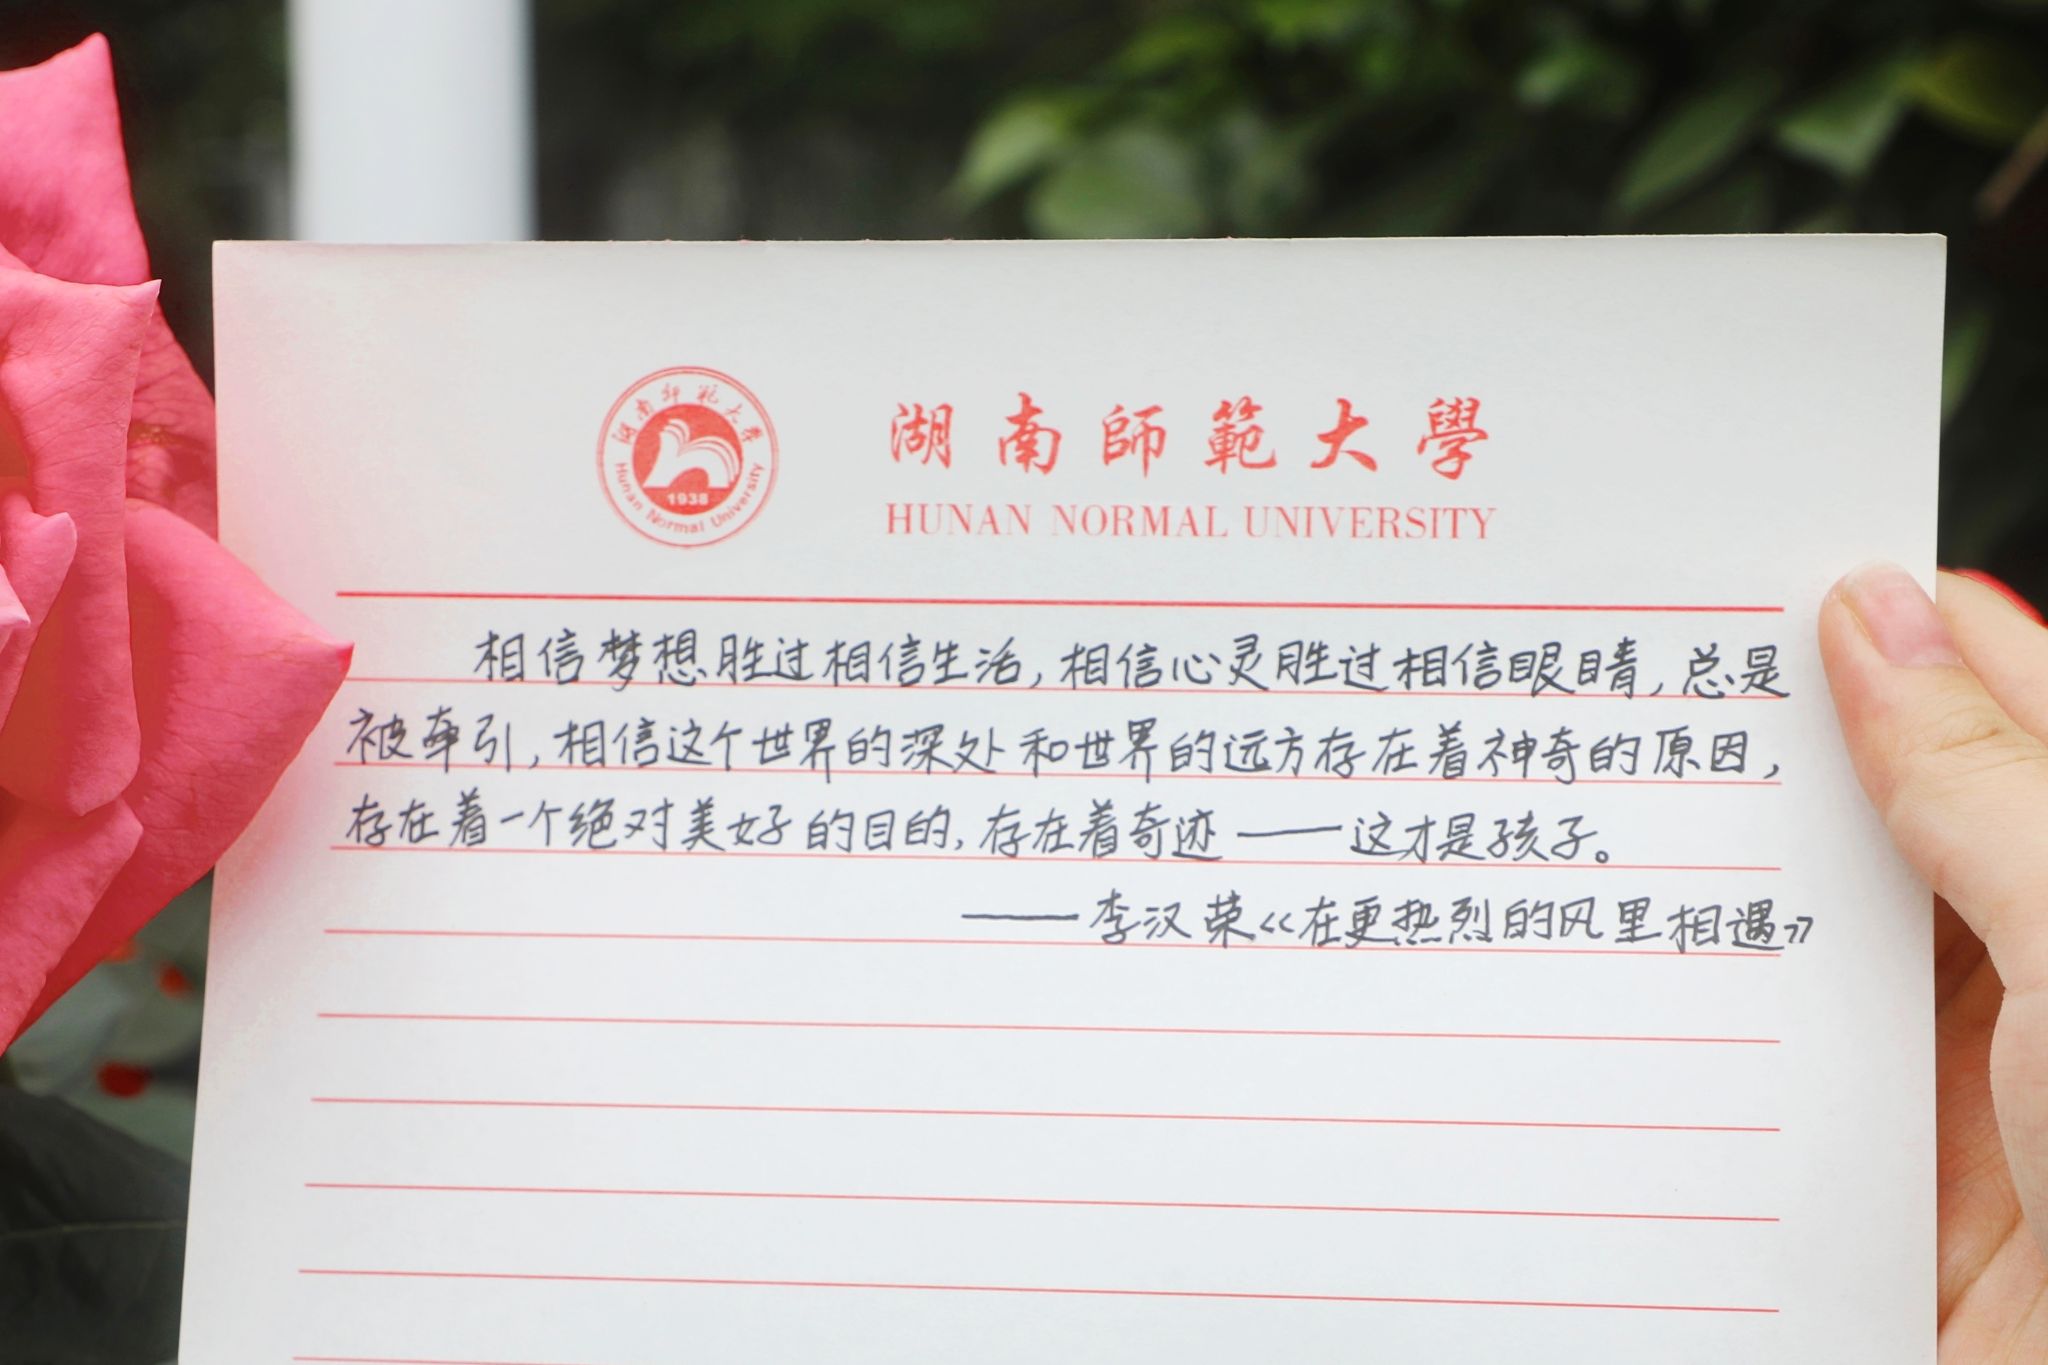 湖南师范大学
1938
Hunan Normal University
湖南師範大學
HUNAN NORMAL UNIVERSITY
相信梦想胜过相信生活,相信心灵胜过相信眼睛,总是
被牵引,相信这个世界的深处和世界的远方存在着神奇的原因,
存在着一个绝对美好的目的,存在着奇迹——这才是孩子。
——李汉荣《在更热烈的风里相遇》